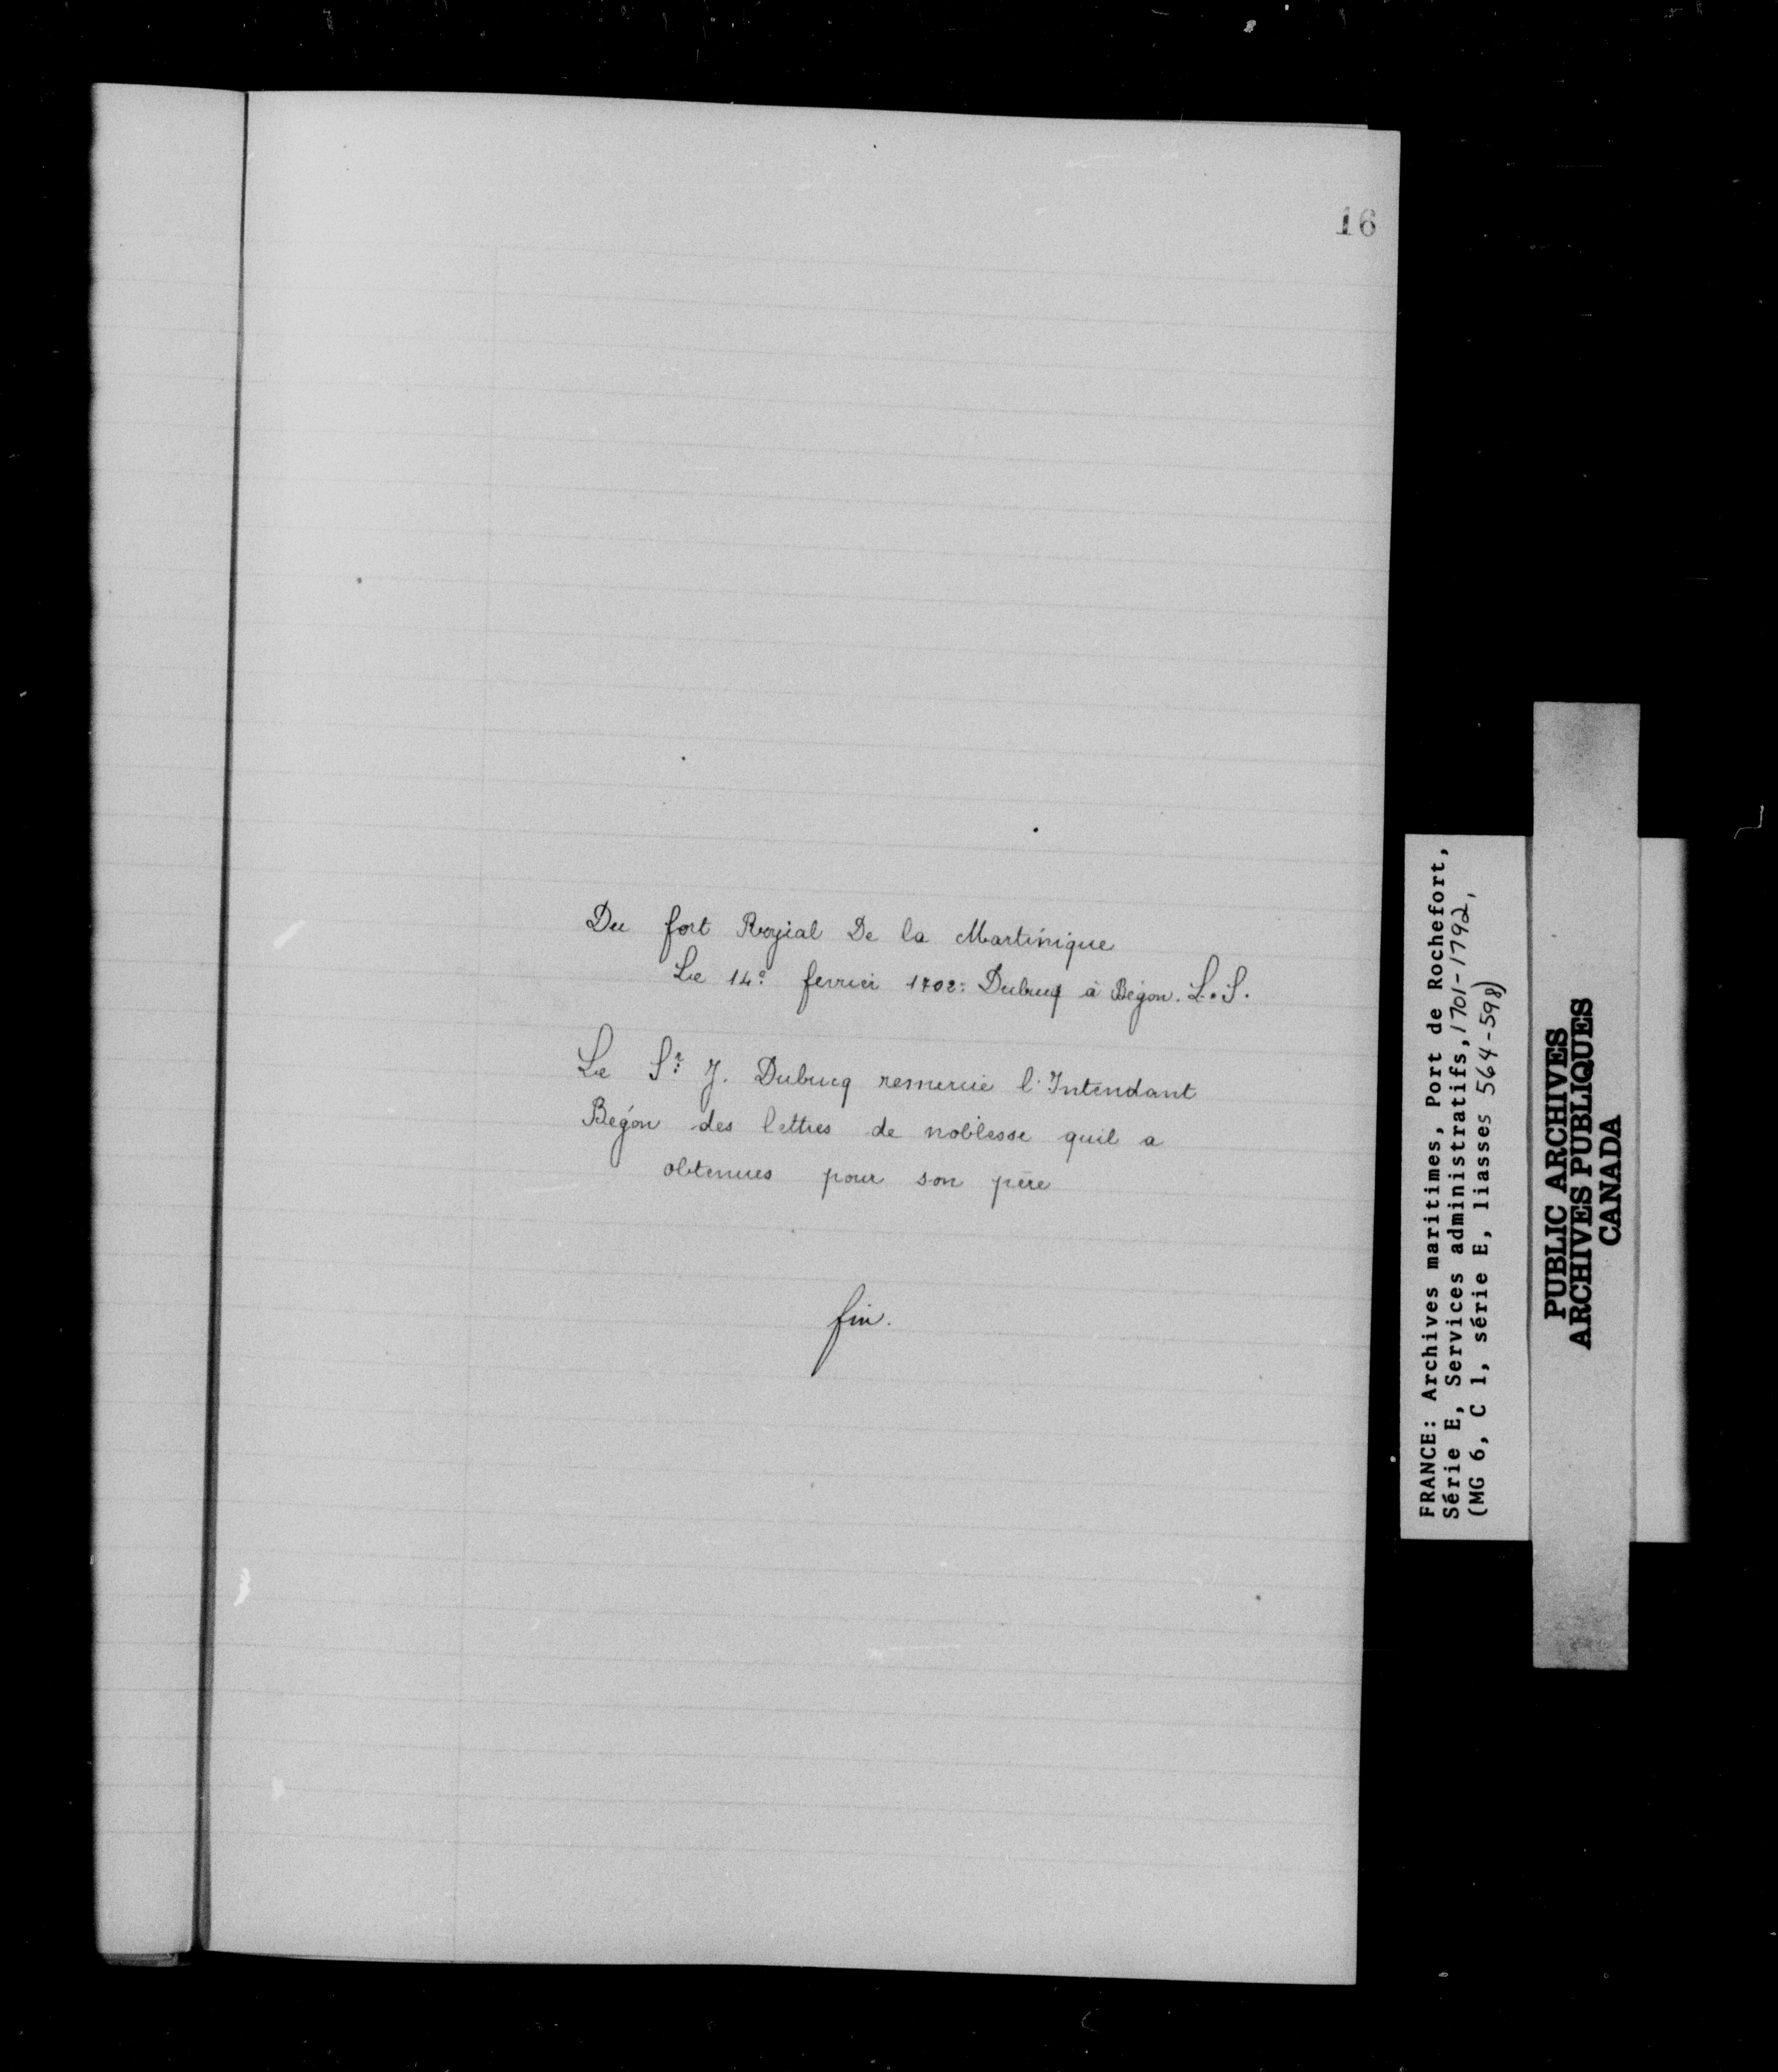 16
Du fort Royial De la Martinique
Le 14e fevrier 1702: Dubucq à Bégon. L.S.
Le Sr. J. Dubucq remercie l'Intendant
Bégon des lettres de noblesse quil a
obtenues pour son père
fin.
FRANCE: Archives maritimes, Port de Rochefort,
Série E, Services administratifs, 1701-1792,
(MG 6, C 1, série E, liasses 564-598)
PUBLIC ARCHIVES
ARCHIVES PUBLIQUES
CANADA